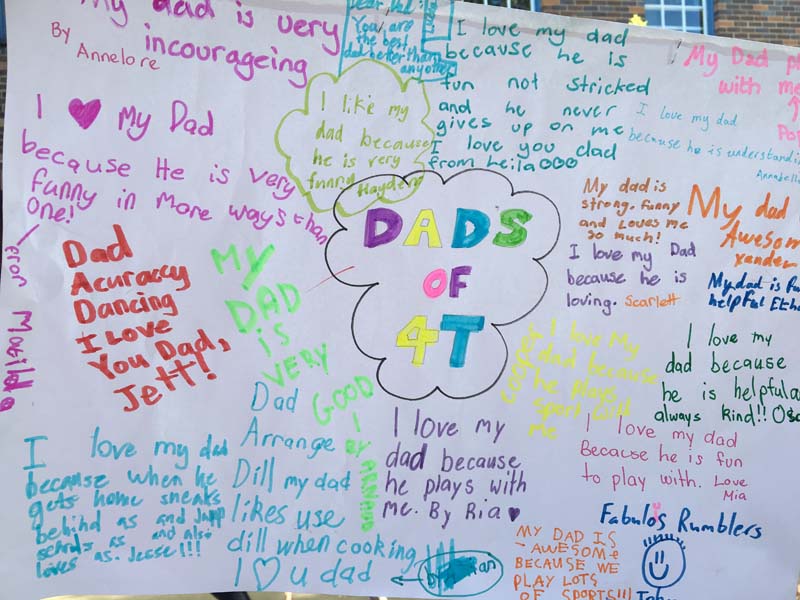 My dad is very
incourageing
By
Annelore
Dear Dad:
You are
the best
dad better than
anyone
I love my dad
because he is
fun not stricked
and he never
gives up on me
I love you dad
from Leila
My Dad
with me
I love my dad
because he is understandin
Annabelle
I ♥ My Dad
because He is very
funny in More ways than
One!
I like my
dad because
he is very
funny Hayden
DADS
OF
4T
My dad is
strong. funny
and Loves me
so much!
My dad
Awesom
xander
I love my Dad
because he is
loving. Scarlett
My dad is
helpful Eth
Dad
Acuraccy
Dancing
I Love
You Dad,
Jett!
MY
DAD
iS
VERY
GOOD
I love My
dad because
he plays
sport with
me
I love my
dad because
he is helpful a
always kind!! Osc
I love my dad
Because he is fun
to play with. Love
Mia
Dad
Arrange
Dill my dad
likes use
dill when cooking
I ♡ u dad
I love my
dad because
he plays with
me. By Ria ♥
I love my dad
because when he
gets home sneaks
behind as and Jupp
scherds as and also
loves as. Jesse!!!
MY DAD IS
AWESOMe
BECAUSE WE
PLAY LOTS
OF SPORTS!!!
Fabulos Rumblers